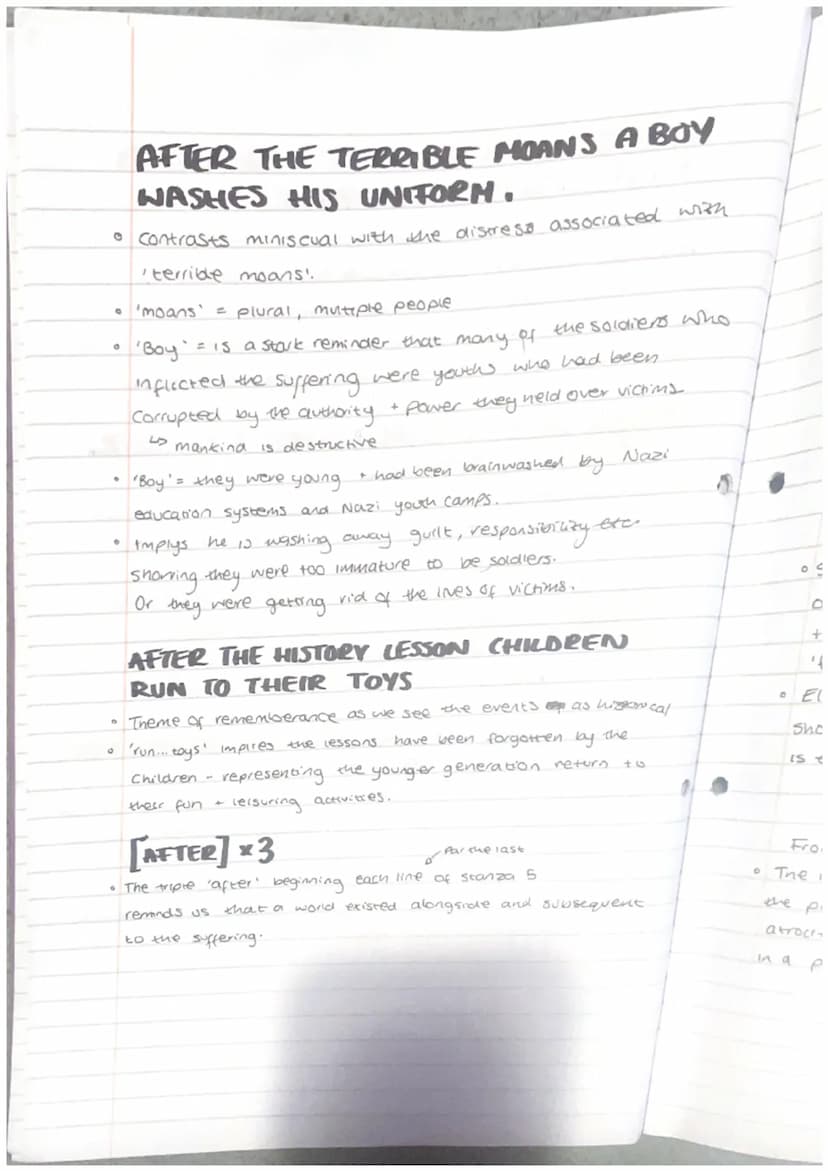 AFTER THE TERRIBLE MOANS A BOY
WASHES HIS UNIFORM.
• contrasts miniscual with the distress associated with
'terrible moans'.
• 'moans' = plural, multiple people
• 'Boy' = is a stark reminder that many of the soldiers who
inflicted the suffering were youths who had been
corrupted by the authority + power they held over victims
↳ mankind is destructive
• 'Boy' = they were young + had been brainwashed by Nazi
education systems and Nazi youth camps.
• Implys he is washing away guilt, responsibility etc.
showing they were too immature to be soldiers.
Or they were getting rid of the lives of victims.
AFTER THE HISTORY LESSON CHILDREN
RUN TO THEIR TOYS
• Theme of rememberance as we see the events as historical
• 'run... toys' implies the lessons have been forgotten by the
children - representing the younger generation return to
their fun + leisuring activities.
[AFTER] x3
for the last
• The triple 'after' beginning each line of stanza 5
reminds us that a world existed alongside and subsequent
to the suffering.
• El
sho
is t
Fro
• The
the p
atroci
in a p